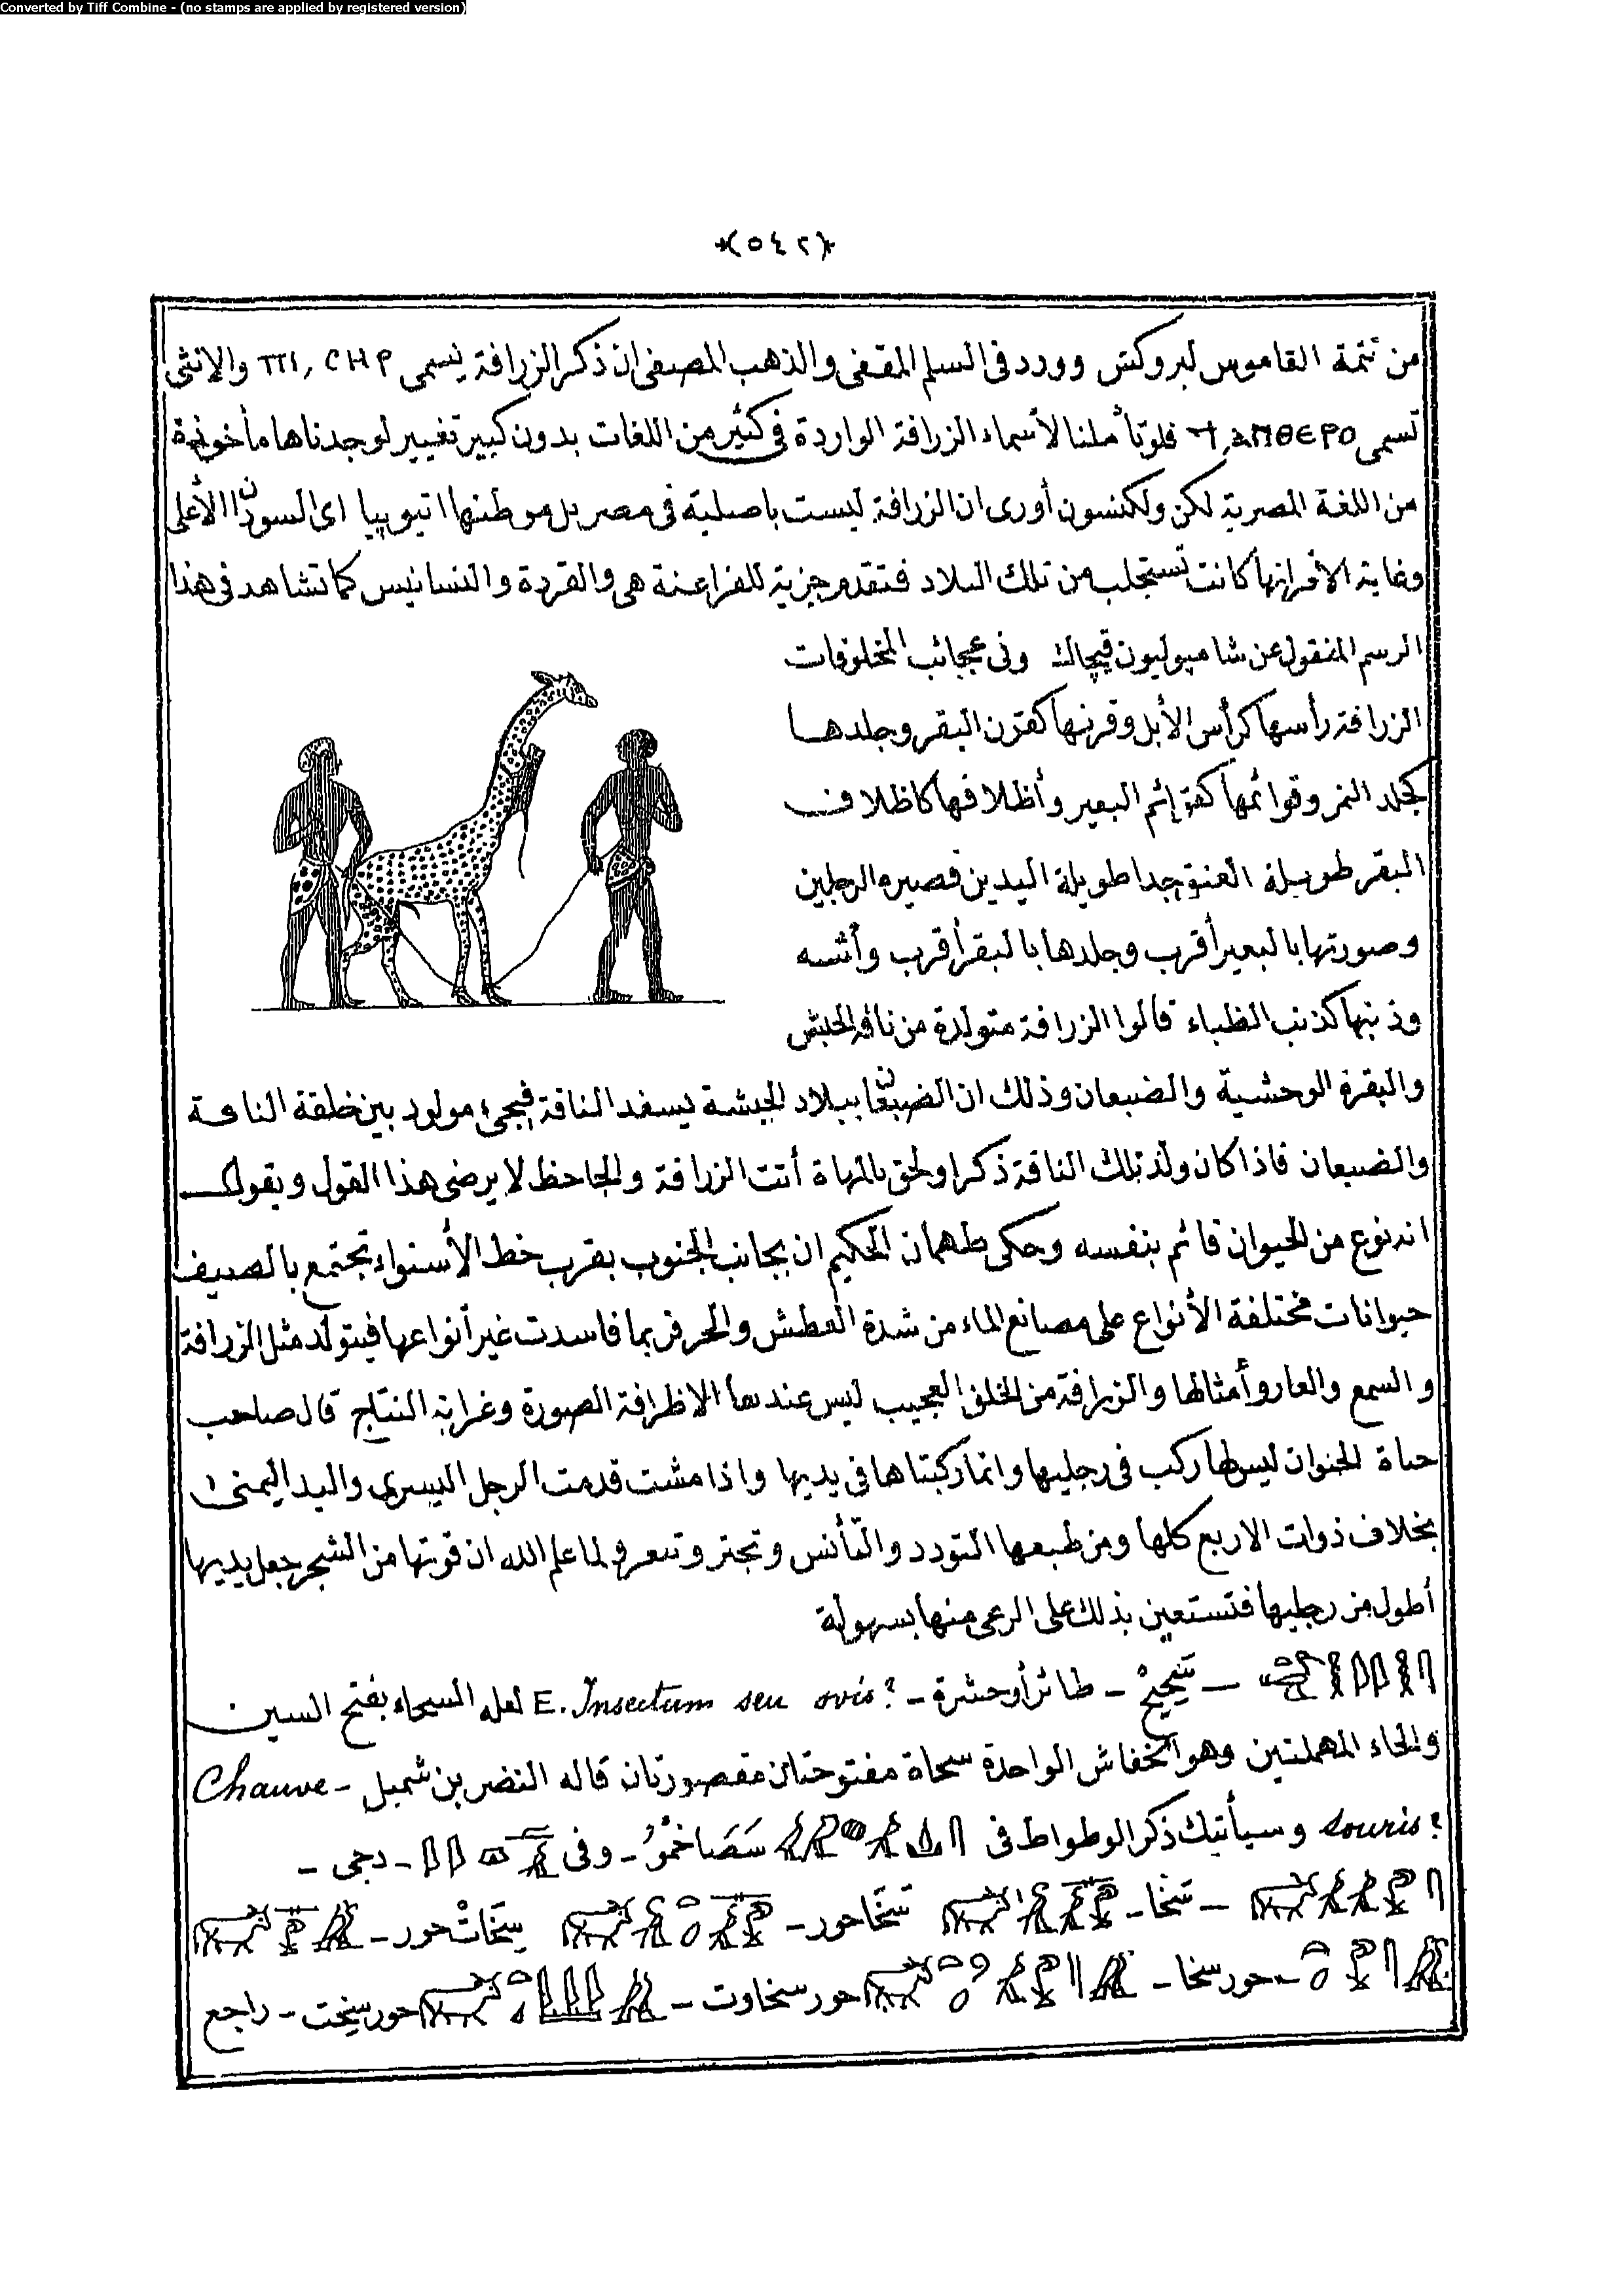 Converted by Tiff Combine - (no stamps are applied by registered version)
﴿٥٤٢﴾
من تتمة القاموس لبروكش وورد فى السلم المقفى والذهب المصفى ان ذكر الزرافة يسمى ⲠⲒ, ⲤⲎⲢ والانثى
تسمى ϯ,ⲁⲛⲑⲉⲣⲟ فلو تأملنا لأسماء الزرافة الواردة فى كثير من اللغات بدون كبير تغيير لوجدناها مأخوذة
من اللغة المصرية لكن ولكنسون أورى ان الزرافة ليست باصلية فى مصر بل موطنها اتيوبيا اى السودان الأعلى
وغاية الأمر انها كانت تستجلب من تلك البلاد فتقدم جزية للفراعنة هى والقردة والنسانيس كما تشاهد فى هذا
الرسم المنقول عن شامبوليون فيجاك وفى عجائب المخلوقات
الزرافة رأسها كرأس الأبل وقرنها كقرن البقر وجلدها
كجلد النمر وقوائمها كقوائم البعير وأظلافها كاظلاف
البقر طويلة العنق جدا طويلة اليدين قصيره الرجلين
وصورتها بالبعير أقرب وجلدها بالبقر أقرب وأشبه
وذنبها كذنب الظباء قالوا الزرافة متولدة من ناقة الحبش
والبقرة الوحشية والضبعان وذلك ان الضبعان ببلاد الحبشة يسفد الناقة فيجىء مولود بين خلقة الناقة
والضبعان فاذا كان ولد تلك الناقة ذكرا ولحق بالمهاة أتت الزرافة والجاحظ لا يرضى هذا القول ويقول
انه نوع من الحيوان قائم بنفسه وحكى طهمان الحكيم ان بجانب الجنوب بقرب خط الأستواء تجتمع بالصيف
حيوانات مختلفة الأنواع على مصانع الماء من شدة العطش والحر فربما فاسدت غير أنواعها فيتولد مثل الزرافة
و السمع والعار وأمثالها والزرافة من الخلق العجيب ليس عندها الا ظرافة الصورة وغرابة النتاج قال صاحب
حياة الحيوان ليس لها ركب فى رجليها وانما ركبتاها فى يديها واذا مشت قدمت الرجل اليسرى واليد اليمنى
بخلاف ذوات الاربع كلها ومن طبعها التودد والتأنس وتجتر وتبعر ولما علم الله ان قوتها من الشجر جعل يديها
أطول من رجليها فتستعين بذلك على الرعى منها بسهولة
– طائر أو حشرة – E. Insectum seu ovis? لعله السحاء بفتح السين
والحاء المهملتين وهو الخفاش الواحدة سحاة مفتوحتان مقصورتان قاله النضر بن شميل – Chauve
souris? وسيأتيك ذكر الوطواط فى سَصَاخمُو – وفى – دجى –
– سَخَا – سَخَاحور – سِخَاتْ حور –
– حورسخا – حورسخاوت – حورسِخِت – راجع